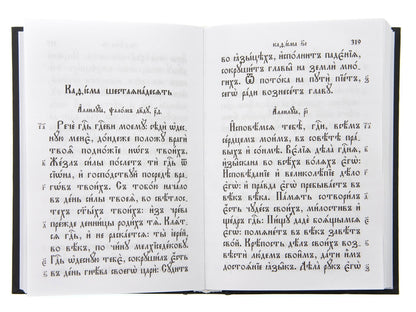 Каѳі́сма шестаянадесять
Аллилу́їа, ѱало́мъ дв҃ду, р҃ѳ.
Речѐ гдⷭ҇ь гдⷭ҇еви моему̀: сѣдѝ ѡ҆дес-
ну́ю менѐ, до́ндеже положу̀ врагѝ
твоѧ̑ подно́жїе но́гъ твои́хъ.
Же́злъ си́лы по́слетъ тѝ гдⷭ҇ь ѿ
сїѡ́на, и҆ госпо́дствуй посредѣ̀
врагѡ́въ твои́хъ. Съ тобо́ю нача́ло
въ де́нь си́лы твоеѧ̀, во свѣ́тлос-
техъ ст҃ы́хъ твои́хъ: и҆з̾ чре́ва
пре́жде денни́цы роди́хъ тѧ̀. Клѧ́т-
сѧ гдⷭ҇ь, и҆ не раска́етсѧ: ты̀ і҆ере́й
во вѣ́къ, по чи́ну мелхїседе́кову.
Гдⷭ҇ь ѡ҆десну́ю тебє̀, сокруши́лъ є҆́сть
въ де́нь гнѣ́ва своегѡ̀ цари̑: Сꙋ́дитъ
каѳі́сма ѕ҃і
319
во ꙗ҆зы́цѣхъ, и҆спо́лнитъ падє́нїѧ,
сокруши́тъ главы̑ на землѝ мно́-
гихъ. Ѿ пото́ка на путѝ пїе́тъ,
сегѡ̀ ра́ди вознесе́тъ главу̀.
Аллилу́їа, р҃і
И҆сповѣ́мсѧ тебѣ̀, гдⷭ҇и, всѣ́мъ
се́рдцемъ мои́мъ, въ совѣ́тѣ пра́-
выхъ и҆ со́нмѣ. Вє́лїѧ дѣла̀ гдⷭ҇нѧ,
и҆зы̑скана во всѣ́хъ во́лѧхъ є҆гѡ̀:
И҆сповѣ́данїе и҆ великолѣ́пїе дѣ́ло
є҆гѡ̀: и҆ пра́вда є҆гѡ̀ пребыва́етъ въ
вѣ́къ вѣ́ка. Па́мѧть сотвори́лъ
є҆́сть чуде́съ свои́хъ, ми́лостивъ и҆
ще́дръ гдⷭ҇ь. Пи́щу дадѐ боѧ́щымсѧ
є҆гѡ̀: помѧне́тъ въ вѣ́къ завѣ́тъ
сво́й. Крѣ́пость дѣ́лъ свои́хъ воз-
вѣстѝ лю́демъ свои̑мъ, да́ти и҆̀мъ
достоѧ́нїе ꙗ҆зы̑къ. Дѣла̀ ру́къ є҆гѡ̀